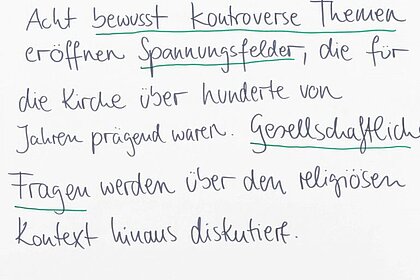 Acht bewusst kontroverse Themen
eröffnen Spannungsfelder, die für
die Kirche über hunderte von
Jahren prägend waren. Gesellschaftlich
Fragen werden über den religiösen
Kontext hinaus diskutiert.